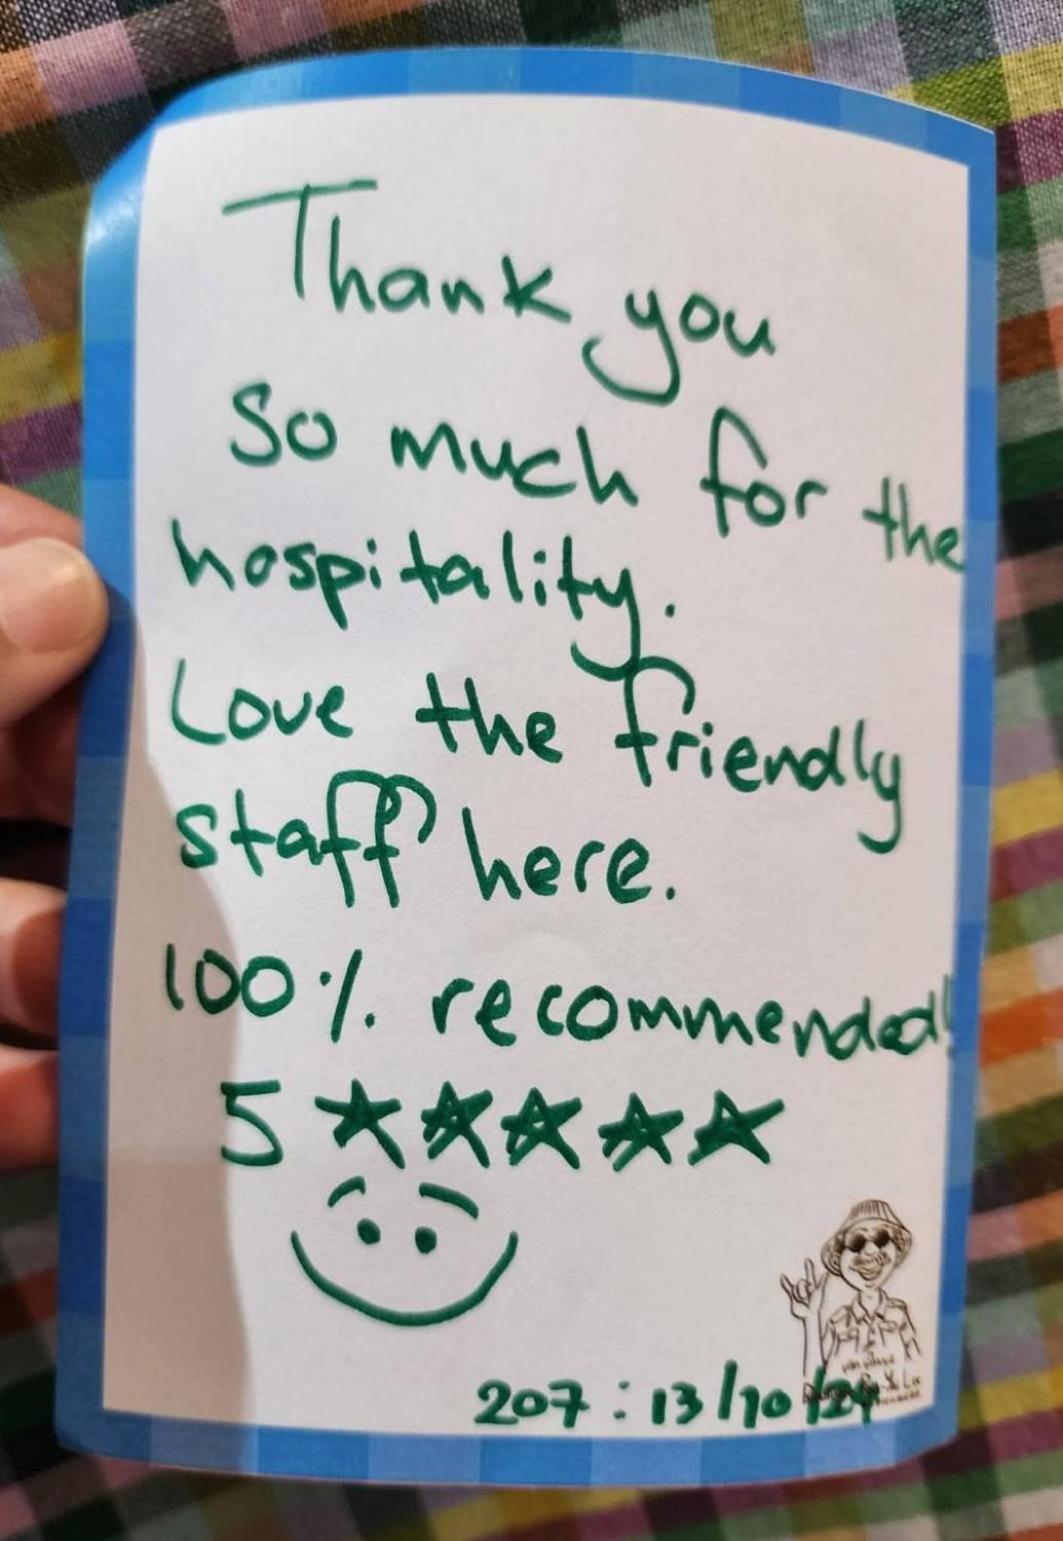 Thank you
so much for the
hospitality.
Love the friendly
staff here.
100% recommended!
5 ★★★★★
207 : 13/10/24